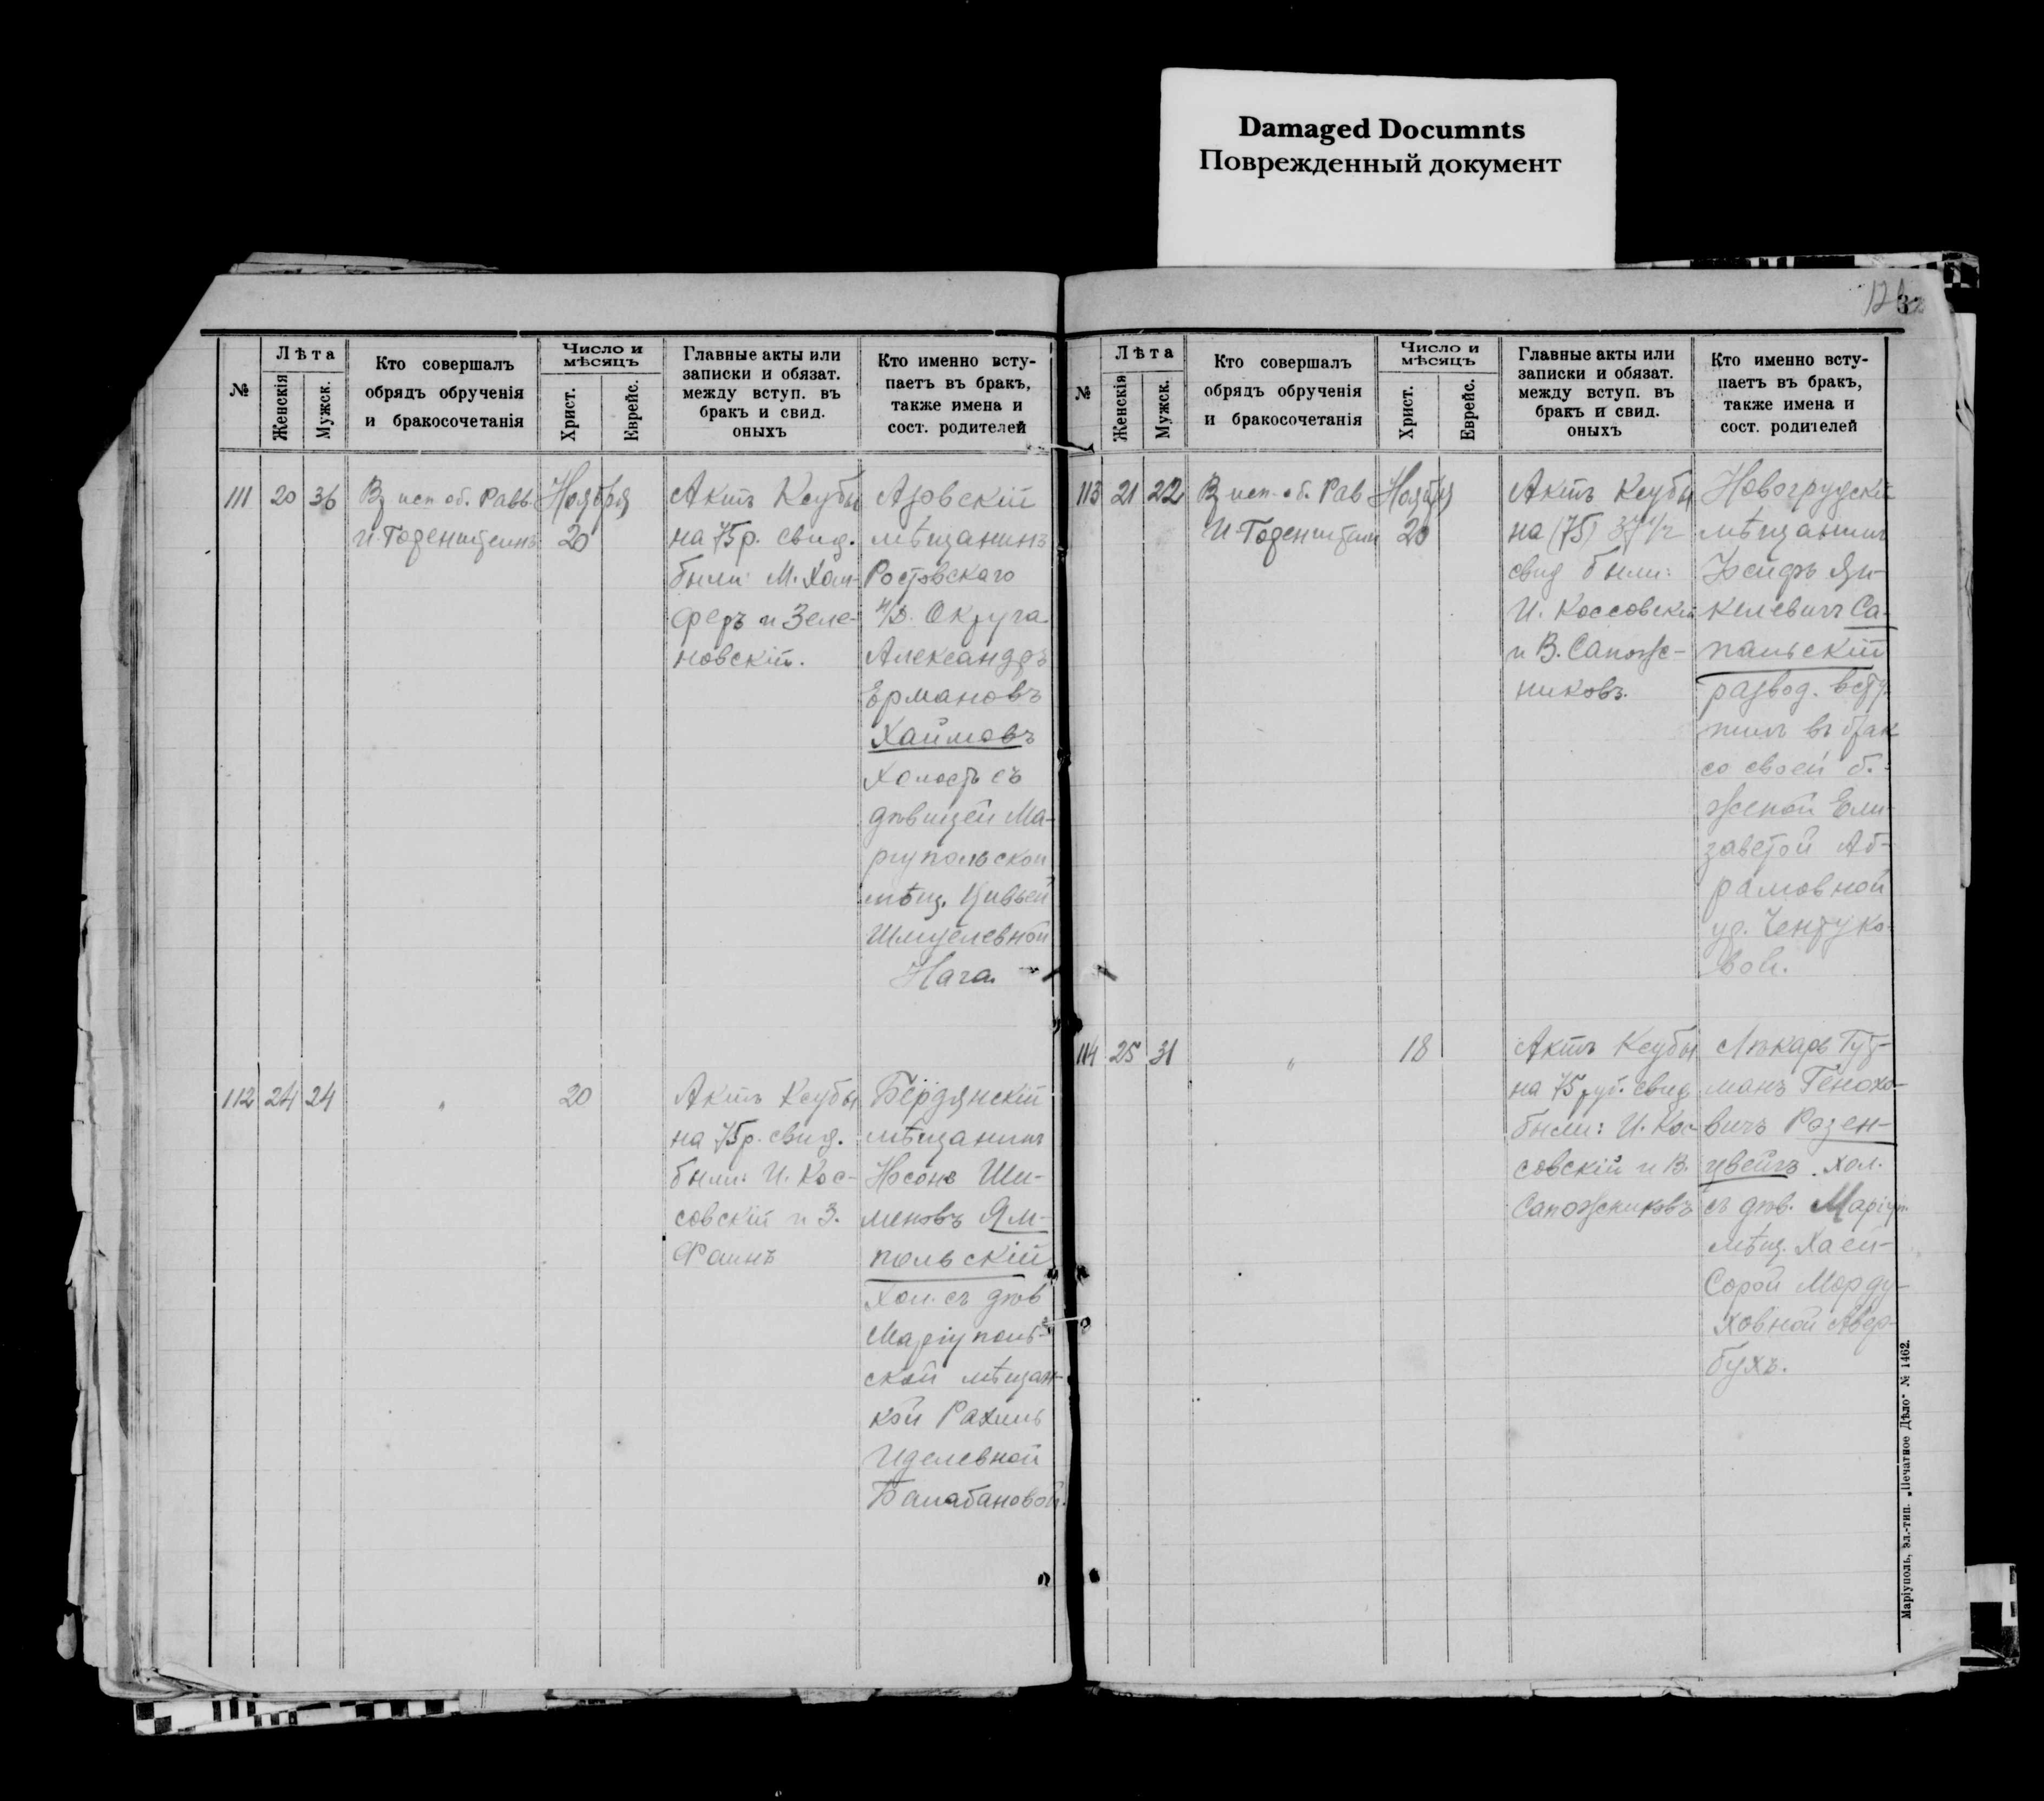 Damaged Documnts
Поврежденный документ
32
№
Лѣта
Женскія
Мужск.
Кто совершалъ
обрядъ обрученія
и бракосочетанія
Число и
мѣсяцъ
Христ.
Еврейс.
Главные акты или
записки и обязат.
между вступ. въ
бракъ и свид.
оныхъ
Кто именно всту-
паетъ въ бракъ,
также имена и
сост. родителей
111
20
36
Вз исп об. Равв.
Ноября
20
Актъ Ксубы
на 75 р. свид.
были: М. Хан-
феръ и Зеле-
новскій.
Азовскій
мѣщанинъ
Ростовскаго
н/Д. Округа
Александръ
Ермановъ
Хаймовъ
холостъ съ
дѣвицей Ма-
ріупольской
мѣщ. Цивьей
Шмулевной
Нага.
112
24
24
"
20
Актъ Ксубы
на 75 р. свид.
были: И. Кос-
совскій и З.
Файнъ
Бердянскій
мѣщанинъ
Носонъ Ши-
меновъ Ям-
польскій
хол. съ дѣв
Маріуполь-
ской мѣщан-
кой Рахиль
Иделевной
Балабановой.
№
Лѣта
Женскія
Мужск.
Кто совершалъ
обрядъ обрученія
и бракосочетанія
Число и
мѣсяцъ
Христ.
Еврейс.
Главные акты или
записки и обязат.
между вступ. въ
бракъ и свид.
оныхъ
Кто именно всту-
паетъ въ бракъ,
также имена и
сост. родителей
113
21
22
Вз исп. об. Рав
Ноября
20
Актъ Ксубы
на (75) 37 1/2
свид были:
И. Коссовскій
и В. Сапож-
никовъ.
Новогрудскій
мѣщанинъ
Янкелевичъ Са-
пальскій
развод. всту-
пилъ въ брак
со своей б.
женой Ели-
заветой Аб-
рамовной
114
25
31
"
18
Актъ Ксубы
на 75 руб. свид
были: И. Кос-
совскій и В.
Сапожниковъ
Лѣкарь Гут-
манъ Генохо-
вичъ Розен-
цвейгъ. хол.
съ дѣв. Маріуп.
мѣщ. Хаей-
Сорой Морду-
ховной Авер-
бухъ.
Маріуполь, эл.-тип. „Печатное Дѣло" № 1462.